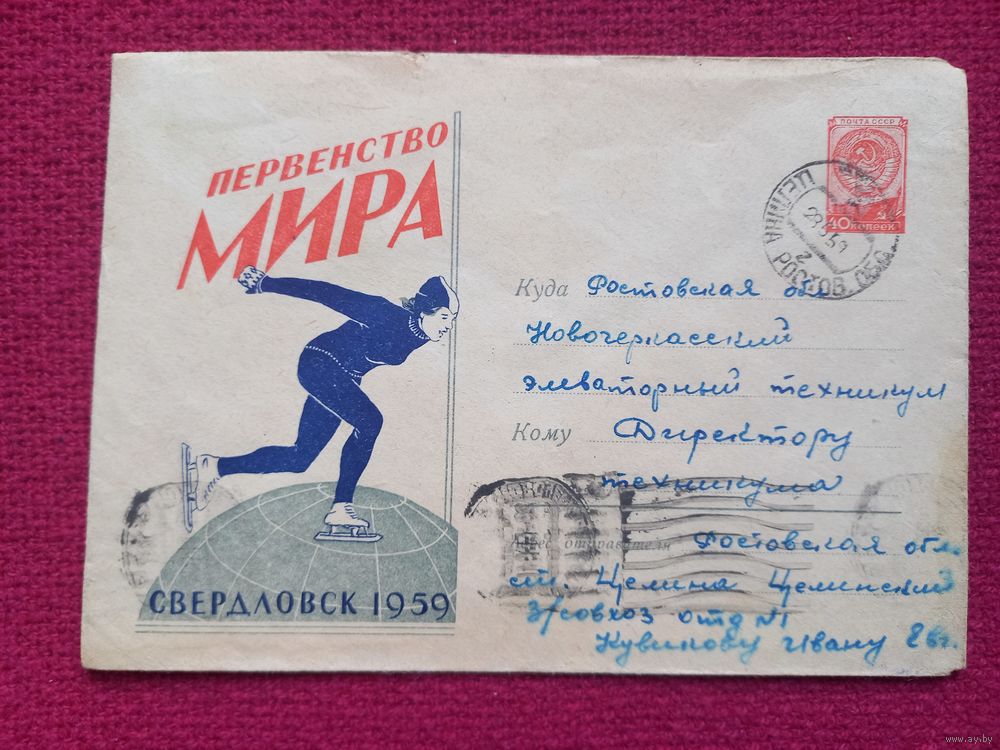 ПЕРВЕНСТВО
МИРА
СВЕРДЛОВСК 1959
ПОЧТА СССР
40 копеек
ЦЕЛИНА РОСТОВ. ОБЛ.
2
Куда Ростовская обл
Новочеркасский
элеваторный техникум
Кому Директору
техникума
отправителя Ростовская обл.
ст. Целина Целинский
З/совхоз отд N1
Кувикову Ивану
www.ay.by